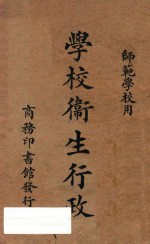 師範學校用
學校衞生行政
商務印書館發行